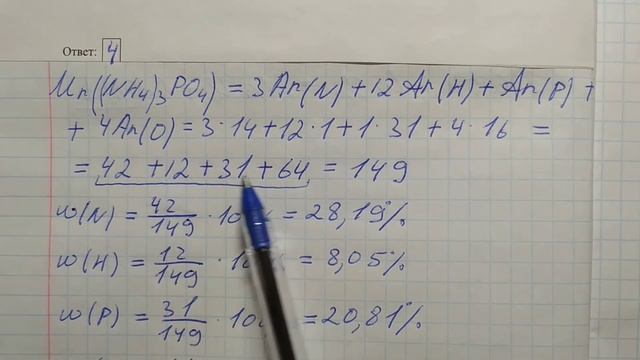 Ответ: 4
Mr((NH₄)₃PO₄) = 3Ar(N) + 12Ar(H) + Ar(P) +
+ 4Ar(O) = 3·14 + 12·1 + 1·31 + 4·16 =
= 42 + 12 + 31 + 64 = 149
w(N) = 42/149 · 10 = 28,19%
w(H) = 12/149 · 1 = 8,05%
w(P) = 31/149 · 10 = 20,81%